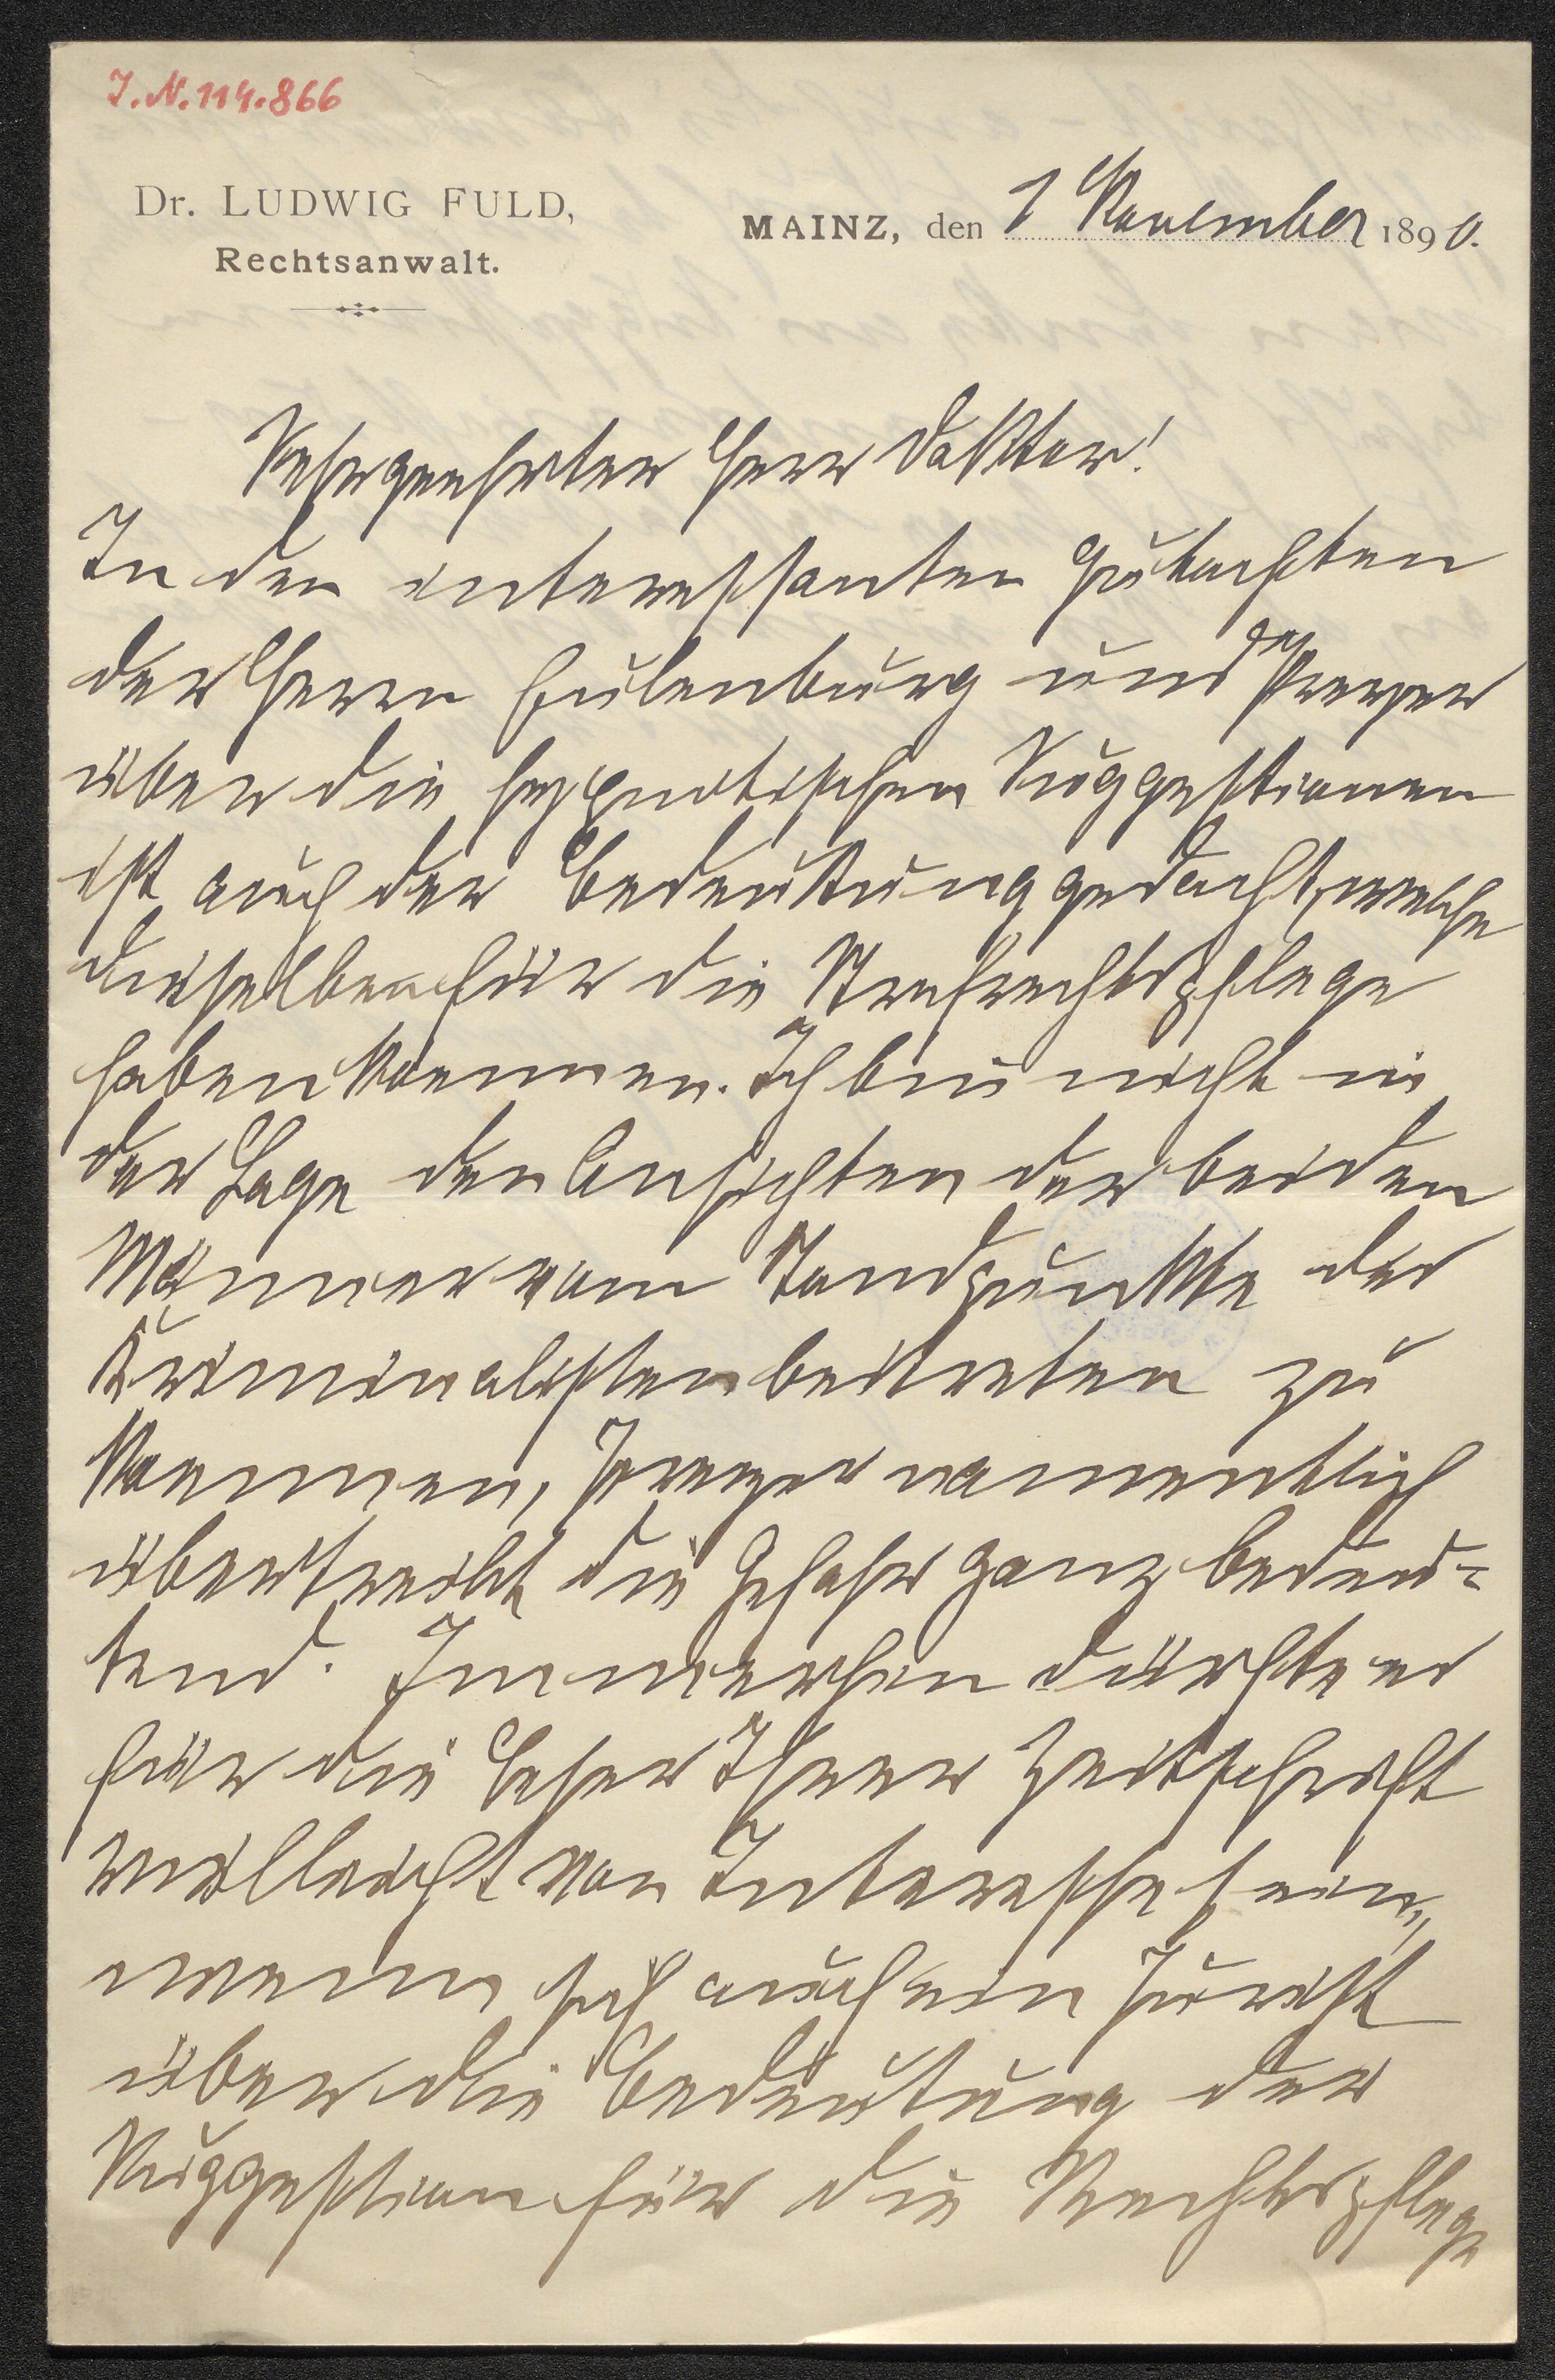 J.N. 114.866
Dr. LUDWIG FULD,
Rechtsanwalt.
MAINZ, den 1 November 1890.
Sehrgeehrter Herr Doktor!
In den interessanten Gutachten
der Herrn Eulenburg und Preyer
über die hypnotischen Suggestionen
ist auch der Bedeutung gedacht, welche
dieselben für die Strafrechtspflege
haben koennen. Ich bin nicht in
der Lage den Ansichten der beiden
Männer vom Standpunkte des
Kriminalisten beitreten zu
koennen, Preyer namentlich
übertreibt die Gefahr ganz bedeu-
tend. Immerhin dürfte es
für die Leser Ihrer Zeitschrift
vielleicht von Interesse sein,
wenn sich auch ein Jurist
über die Bedeutung der
Suggestion für die Rechtspflege